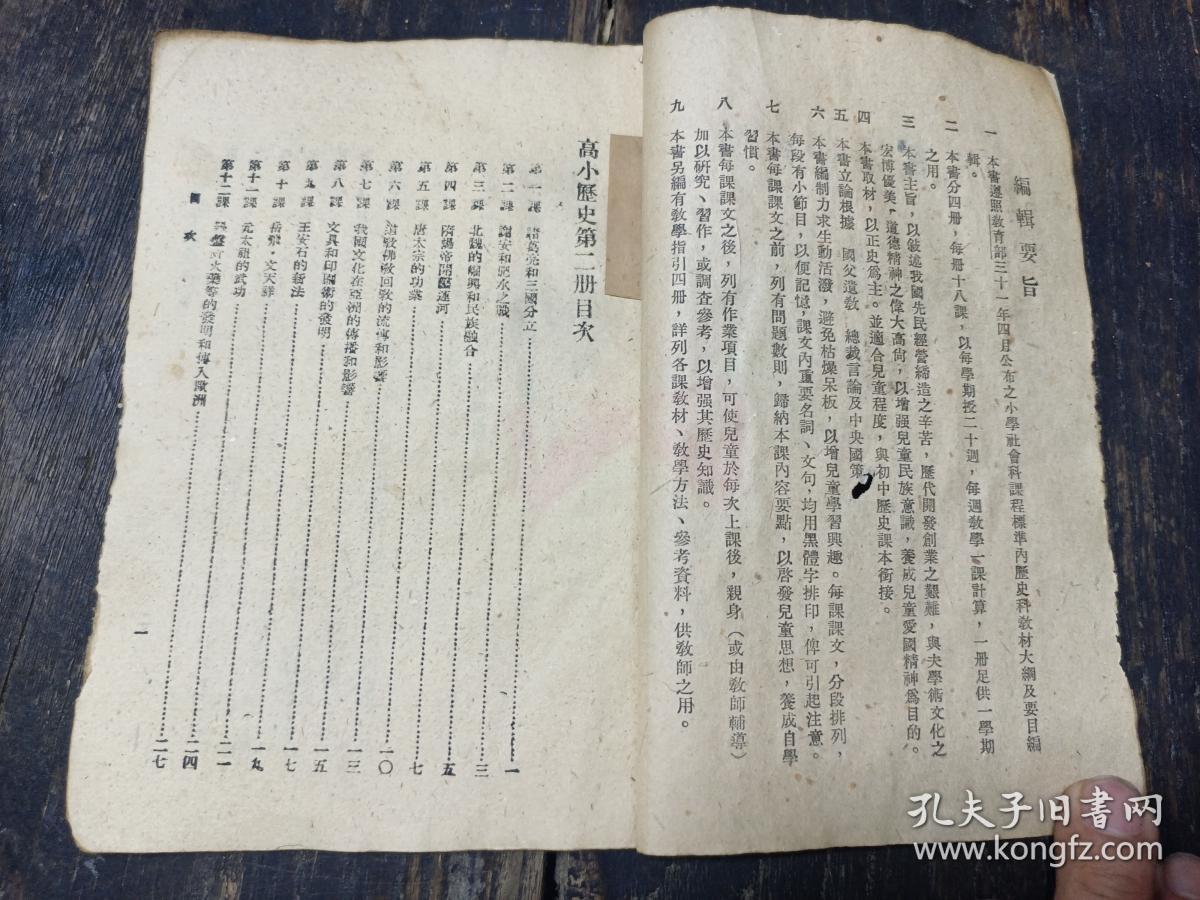 編輯要旨
一 本書遵照教育部三十一年四月公布之小學社會科課程標準內歷史科教材大綱及要目編
輯。
二 本書分四册，每册十八課，以每學期授二十週，每週教學一課計算，一册足供一學期
之用。
三 本書主旨，以敍述我國先民經營締造之辛苦，歷代開發創業之艱難，與夫學術文化之
宏博優美、道德精神之偉大高尚，以增强兒童民族意識，養成兒童愛國精神爲目的。
四 本書取材，以正史爲主。並適合兒童程度，與初中歷史課本銜接。
五 本書立論根據 國父遺教 總裁言論及中央國策
六 本書編制力求生動活潑，避免枯燥呆板，以增兒童學習興趣。每課課文，分段排列，
每段有小節目，以便記憶，課文內重要名詞、文句，均用黑體字排印，俾可引起注意。
七 本書每課課文之前，列有問題數則，歸納本課內容要點，以啓發兒童思想，養成自學
習慣。
八 本書每課課文之後，列有作業項目，可使兒童於每次上課後，親身（或由教師輔導）
加以研究、習作，或調查參考，以增强其歷史知識。
九 本書另編有教學指引四册，詳列各課教材、教學方法、參考資料，供教師之用。
高小歷史第二册目次
第一課 諸葛亮和三國分立……一
第二課 謝安和淝水之戰……三
第三課 北魏的崛興和民族融合……五
第四課 隋煬帝開鑿運河……七
第五課 唐太宗的功業……一〇
第六課 道教佛教回教的流傳和影響……一三
第七課 我國文化在亞洲的傳播和影響……一五
第八課 文具和印刷術的發明……一七
第九課 王安石的新法……一九
第十課 岳飛・文天祥……二一
第十一課 元太祖的武功……二四
第十二課 火藥等的發明和傳入歐洲……二七
目次
一
孔夫子旧书网
www.kongfz.com